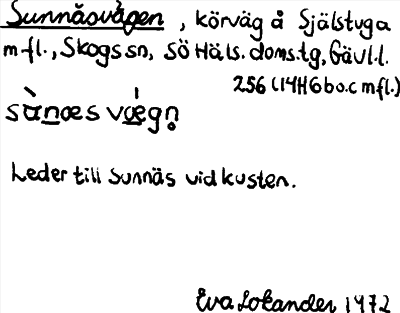 Sunnåsvägen, körväg å Själstuga
m fl., Skogs sn, SÖ Häls. doms.tg, Gävl.l.
256 (14H6 bo.c m fl.)
Leder till Sunnäs vid kusten.
Eva Lokander 1972